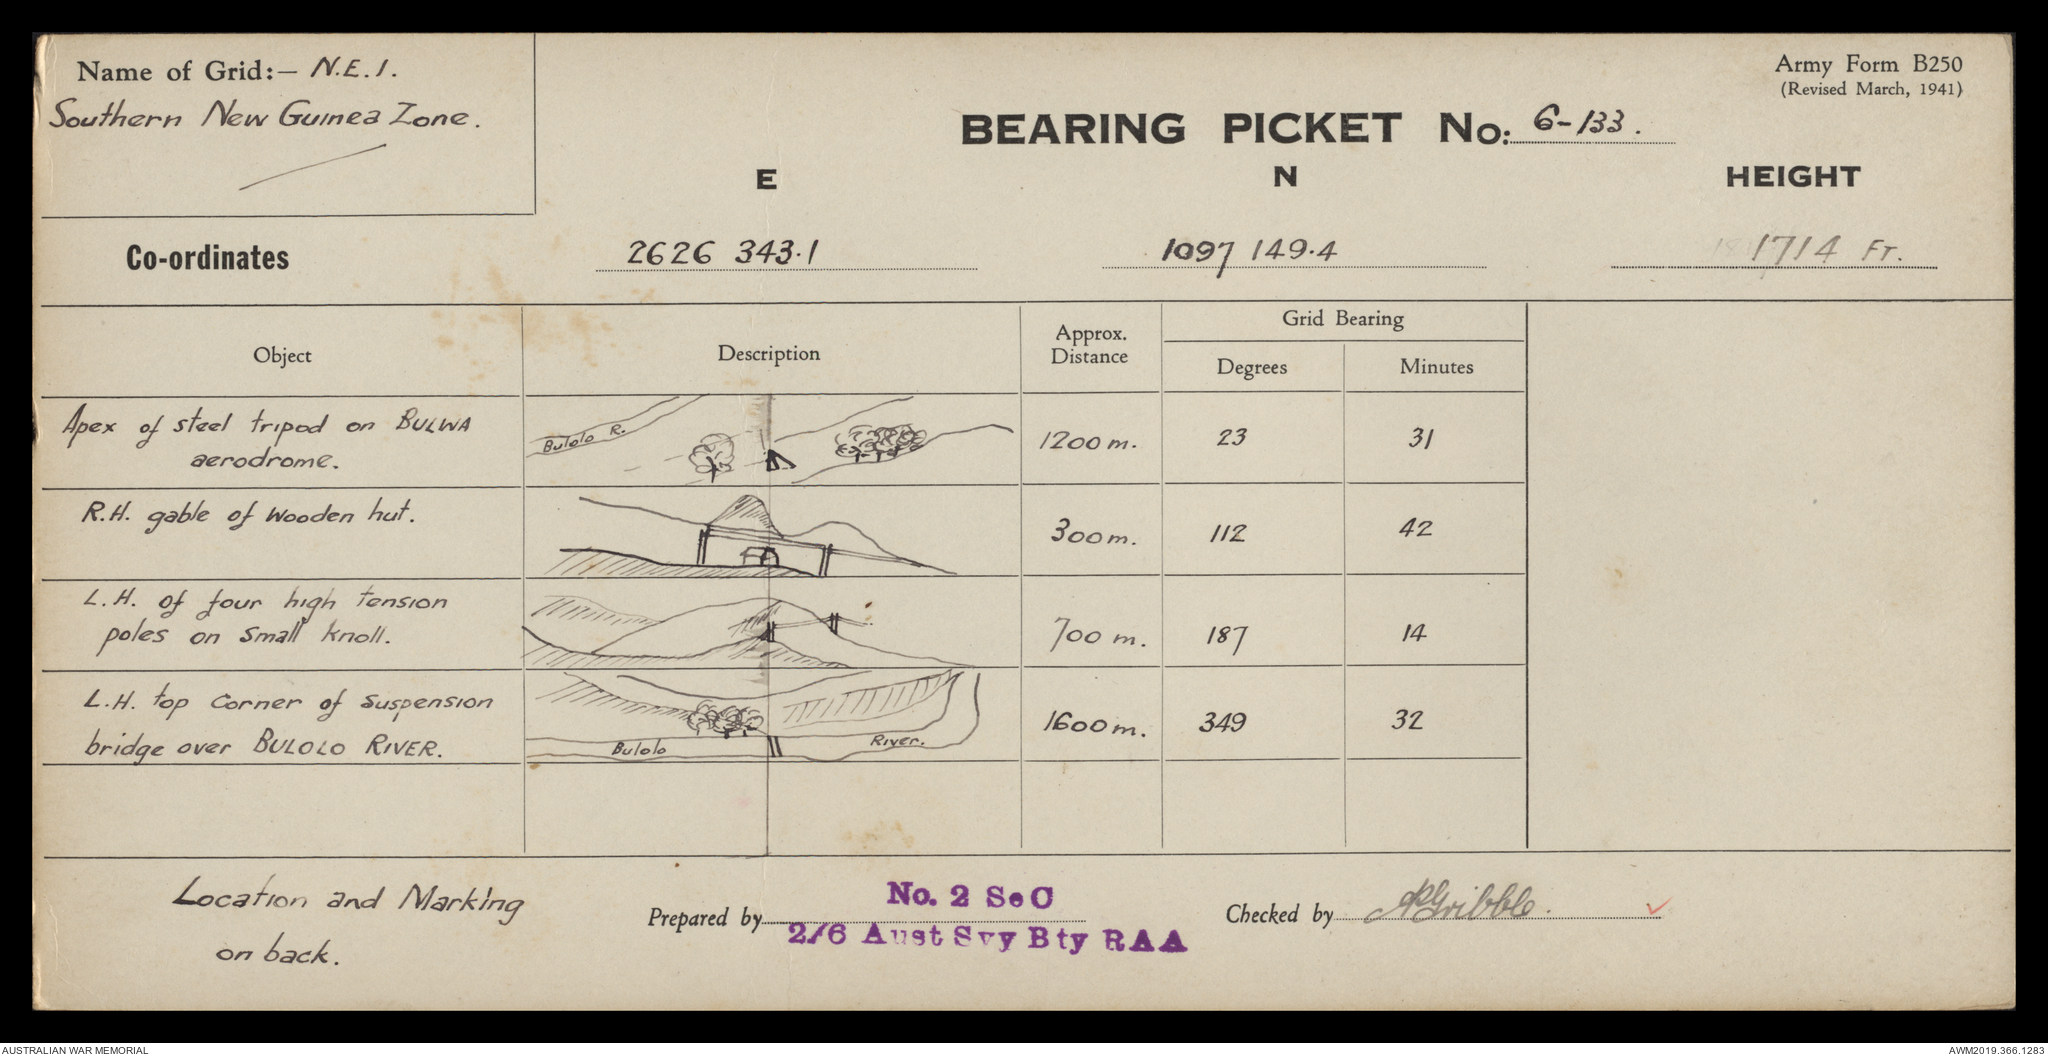 Name of Grid:– N.E.I.
Southern New Guinea Zone.
Army Form B250
(Revised March, 1941)
BEARING PICKET No: 6-133.
E
N
HEIGHT
Co-ordinates
2626 343.1
1097 149.4
1714 Ft.
Object
Description
Approx.
Distance
Grid Bearing
Degrees
Minutes
Apex of steel tripod on BULWA
aerodrome.
Bulolo R.
1200 m.
23
31
R.H. gable of wooden hut.
300 m.
112
42
L.H. of four high tension
poles on small knoll.
700 m.
187
14
L.H. top corner of suspension
bridge over BULOLO RIVER.
Bulolo River.
1600 m.
349
32
Location and Marking
on back.
Prepared by
No. 2 SeC
2/6 Aust Svy Bty RAA
Checked by
Gribble.
AUSTRALIAN WAR MEMORIAL
AWM2019.366.1283